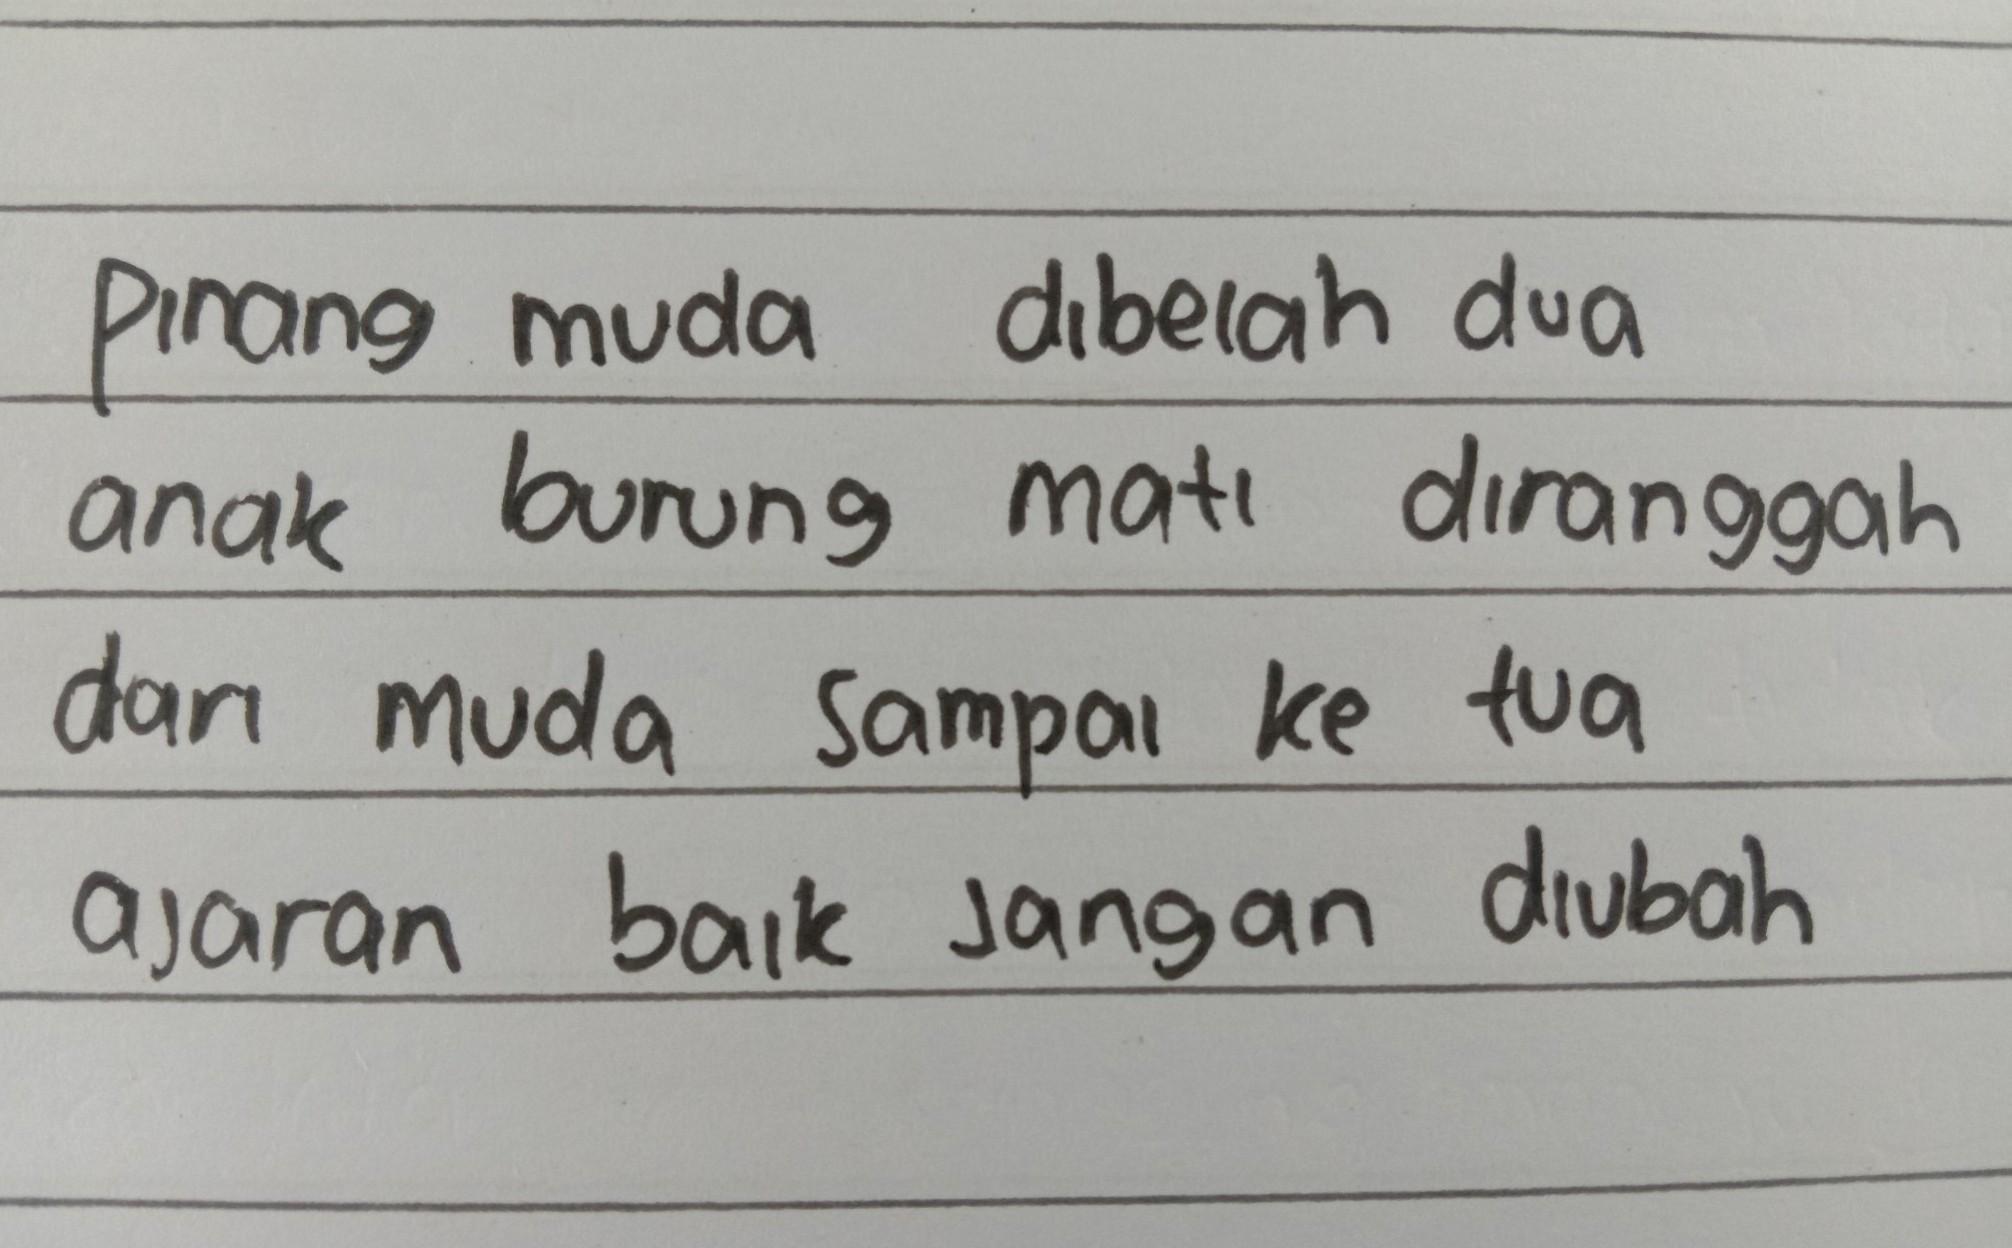 pinang muda dibelah dua
anak burung mati diranggah
dari muda sampai ke tua
ajaran baik jangan diubah